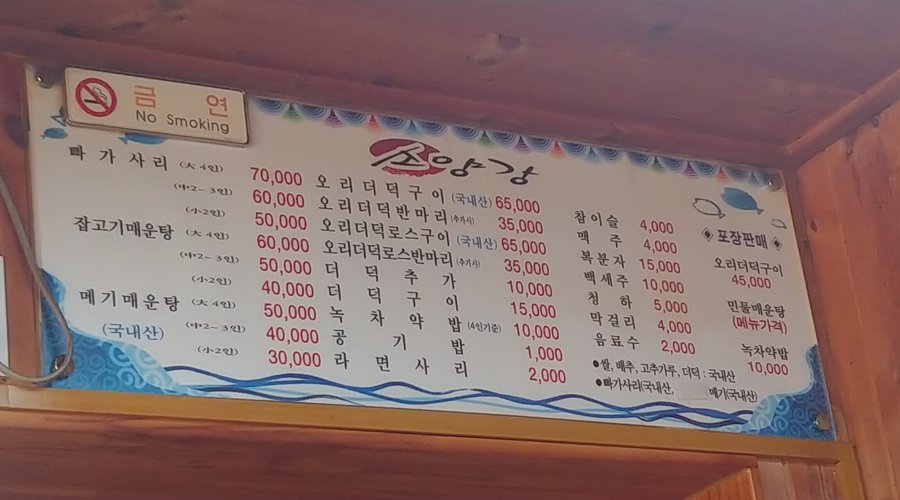 금 연
No Smoking
소양강
빠가사리 (大 4인) 70,000
(中2~3인) 60,000
(小2인) 50,000
잡고기매운탕 (大 4인) 60,000
(中2~3인) 50,000
(小2인) 40,000
메기매운탕 (大 4인) 50,000
(국내산) (中2~3인) 40,000
(小2인) 30,000
오리더덕구이 (국내산) 65,000
오리더덕반마리 (추가시) 35,000
오리더덕로스구이 (국내산) 65,000
오리더덕로스반마리 (추가시) 35,000
더덕추가 10,000
더덕구이 15,000
녹차약밥 (4인기준) 10,000
공기밥 1,000
라면사리 2,000
참이슬 4,000
맥주 4,000
복분자 15,000
백세주 10,000
청하 5,000
막걸리 4,000
음료수 2,000
◈ 포장판매 ◈
오리더덕구이
45,000
민물매운탕
(메뉴가격)
녹차약밥
10,000
●쌀, 배추, 고추가루, 더덕 : 국내산
●빠가사리(국내산, 메기(국내산)